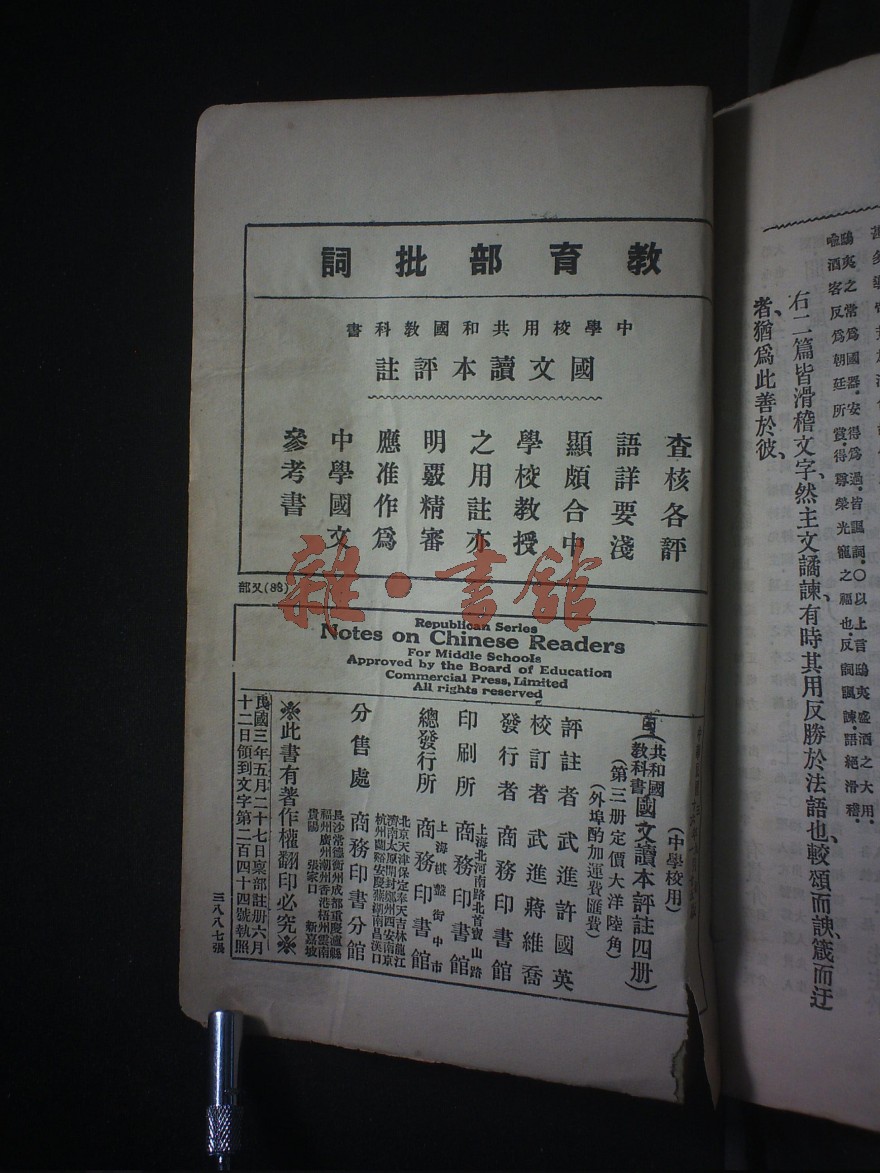 喻酒客反爲朝廷所賞得尊榮光寵之福也反詞諷諫語絕滑稽
右二篇皆滑稽文字、然主文譎諫、有時其用反勝於法語也、較頌而諛、箴而迂
者、猶爲此善於彼、
教育部批詞
中學校用共和國教科書
國文讀本評註
查核各評
語詳要淺
顯頗合中
學校教授
之用註亦
明覈精審
應准作爲
中學國文
參考書
部又(88)
雜·書館
Republican Series
Notes on Chinese Readers
For Middle Schools
Approved by the Board of Education
Commercial Press, Limited
All rights reserved
(中學校用)
(共和國教科書國文讀本評註四册)
(第三册定價大洋陸角)
(外埠酌加運費匯費)
評註者 武進許國英
校訂者 武進蔣維喬
發行者 商務印書館
上海北河南路北首寶山路
印刷所 商務印書館
上海棋盤街中市
總發行所 商務印書館
北京天津保定奉天吉林龍江
濟南太原開封鄭州西安南京
杭州蘭谿安慶蕪湖南昌漢口
分售處 商務印書分館
長沙常德衡州成都重慶瀘縣
福州廣州潮州香港梧州雲南
貴陽 張家口 新嘉坡
※此書有著作權翻印必究※
民國三年五月二十七日稟部註册六月
十二日領到文字第二百四十四號執照
三八八七張